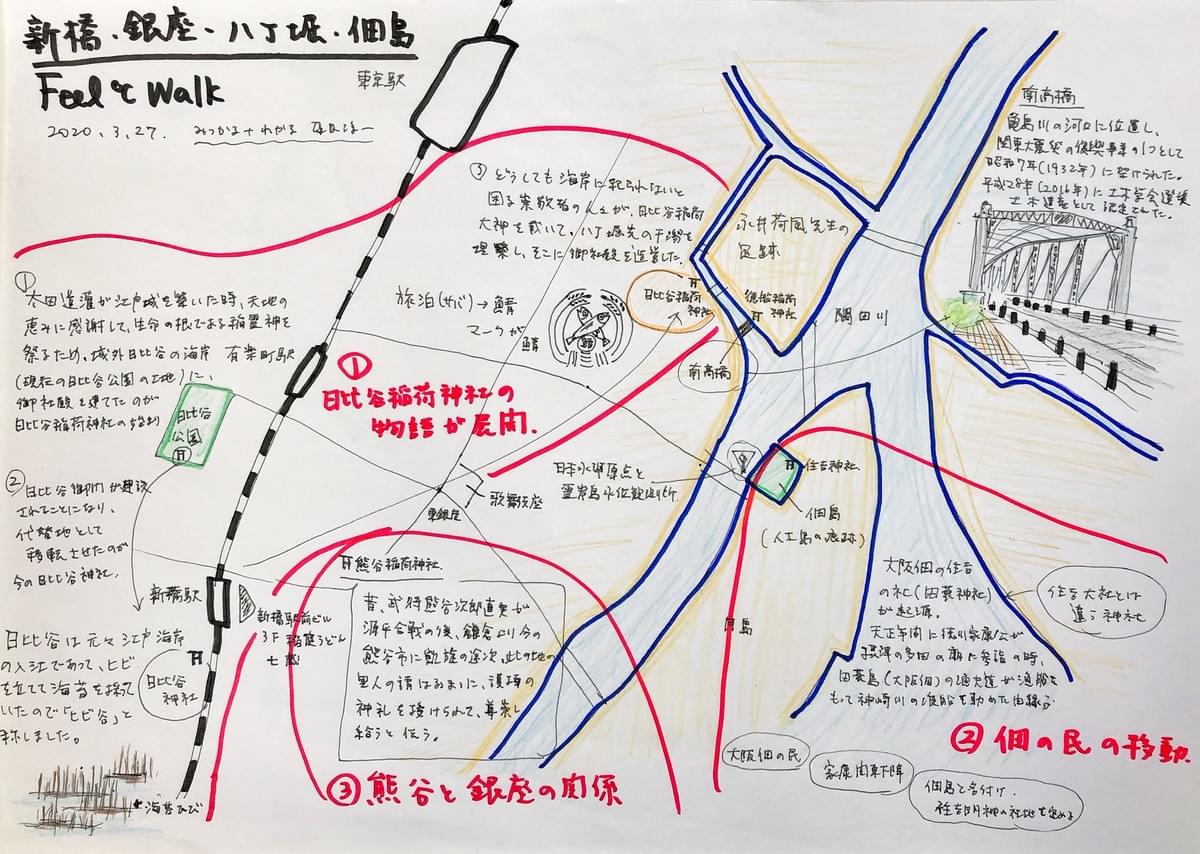 新橋・銀座・八丁堀・佃島
Feel℃ Walk
東京駅
2020.3.27.
南高橋
亀島川の河口に位置し、
関東大震災の復興事業の1つとして
昭和7年(1932年)に架けられた。
平成28年(2016年)に土木学会選奨
土木遺産として認定された。
③ どうしても海岸に祀られないと
困る崇敬者の人々が、日比谷稲荷
大神を戴いて、八丁堀先の干場を
埋築し、そこに御社殿を造営した。
永井荷風先生の
足跡
① 太田道灌が江戸城を築いた時、天地の
恵みに感謝して、生命の根である稲霊神を
祭るため、城外日比谷の海岸
(現在の日比谷公園の土地)に、
御社殿を建てたのが
日比谷稲荷神社の始まり
有楽町駅
旅泊(サバ)→鯖
マークが鯖
鯖
日比谷稲荷
神社
徳船稲荷
神社
隅田川
南高橋
① 日比谷稲荷神社の
物語が展開.
日比谷
公園
② 日比谷御門が建設
されることになり、
代替地として
移転させたのが
今の日比谷神社.
東銀座
歌舞伎座
日本水準原点と
霊岸島水位観測所.
住吉神社
佃島
(人工島の痕跡)
月島
熊谷稲荷神社.
昔、武将熊谷次郎直実が
源平合戦の後、鎌倉より今の
熊谷市に凱旋の途次、此の地の
里人の請はるままに、護持の
神礼を授けられて、尊崇し
給うと伝う。
新橋駅
新橋駅前ビル
3F 稲庭うどん
七蔵
日比谷
神社
日比谷は元々江戸海岸
の入江であって、ヒビ
を立てて海苔を採って
いたので「ヒビ谷」と
称しました。
←海苔ひび
大阪佃の住吉
の社(田蓑神社)
が起源.
天正年間に徳川家康公が
摂津の多田の廟に参詣の時、
田蓑島(大阪佃)の漁夫達が漁船を
もて神崎川の渡船を勤めた由縁
住吉大社とは
違う神社
② 佃の民の移動.
大阪佃の民
家康関東下降
佃島と名付け.
住吉明神の社地を定める
③ 熊谷と銀座の関係